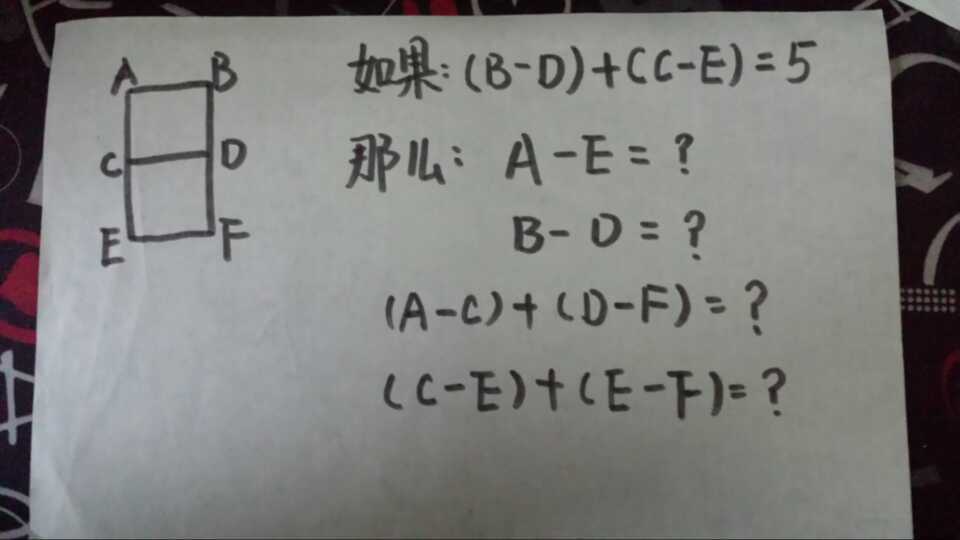 A B
C D
E F
如果:(B-D)+(C-E)=5
那么: A-E=?
B-D=?
(A-C)+(D-F)=?
(C-E)+(E-F)=?